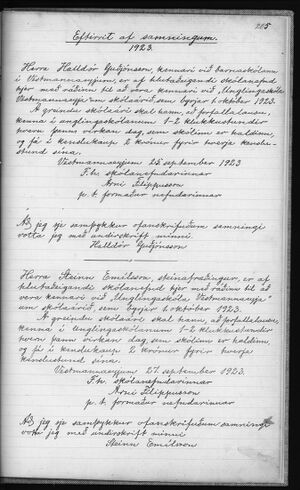 205
Eftirrit af samningum.
1923.
Herra Halldór Guðjónsson kennari við barnaskólann
í Vestmannaeyjum, er af hlutaðeigandi skólanefnd
hjer með ráðinn til að vera kennari við „Unglingaskóla
Vestmannaeyja" um skólaárið, sem byrjar 1. október 1923.
Á greindu skólaári skal hann, að forfallalausu,
kenna í unglingaskólanum 1-2 klukkustundir
hvern þann virkan dag, sem skólinn er haldinn,
og fá í kenslukaup 2 krónur fyrir hverja kenslu-
stund sína.
Vestmannaeyjum 25. september 1923
F. h. skólanefndarinnar
Árni Filippusson
p. t. formaður nefndarinnar
Að jeg sje samþykkur ofanskrifuðum samningi
votta jeg með undirskrift minni
Halldór Guðjónsson
Herra Steinn Emilsson steinafræðingur, er af
hlutaðeigandi skólanefnd hjer með ráðinn til að
vera kennari við „Unglingaskóla Vestmannaeyja"
um skólaárið, sem byrjar 1. október 1923.
Á greindu skólaári skal hann, að forfallalausu,
kenna í unglingaskólanum 1-2 klukkustundir
hvern þann virkan dag, sem skólinn er haldinn,
og fá í kenslukaup 2 krónur fyrir hverja
kenslustund sína.
Vestmannaeyjum 27. september 1923.
F. h. skólanefndarinnar
Árni Filippusson
p. t. formaður nefndarinnar
Að jeg sje samþykkur ofanskrifuðum samningi
votta jeg með undirskrift minni
Steinn Emilsson